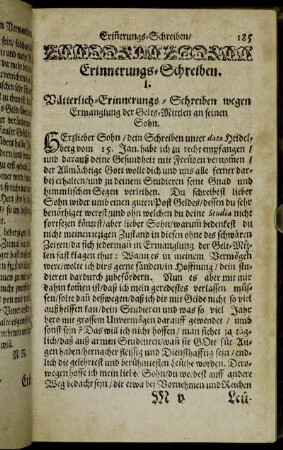 Erinnerungs-Schreiben/ 185
Erinnerungs-Schreiben.
I.
Vätterlich-Erinnerungs-Schreiben wegen
Ermanglung der Gelts-Mittlen an seinen
Sohn.
HErtzlieber Sohn/ dein Schreiben unter dato Heidel-
berg vom 15. Jan. habe ich zu recht empfangen/
und darauß deine Gesundheit mit Freüden vernomen/
der Allmächtige Gott wolle dich und uns alle ferner dar-
bey erhalten/ und zu deinem Studieren seine Gnad und
himmlischen Segen verleihen. Du schreibest lieber
Sohn wider umb einen guten Post Geldes/ dessen du sehr
benöhtiget werest/ und ohn welchen du deine Studia nicht
fortsetzen köntest/ aber lieber Sohn/ warum bedenkest du
nicht meinen jetzigen Zustand in diesen ohne des schwären
Zeiten/ da sich jederman in Ermanglung der Gelt-Mit-
len fast klagen thut: Wann es in meinem Vermögen
were/ wolte ich dirs gerne senden/ in Hoffnung/ dein stu-
dieren dardurch zubefördern. Nun es aber mit mir
dahin komen ist/ daß ich mein geredestes verlassen müs-
sen/ solte dan deßwegen/ daß ich dir mit Gelde nicht so viel
aushelffen kan/ dein Studieren und was so viel Jahr
hero mit grossem Unvermögen darauff gewendet/ umb
sonst sein? Das will ich nicht hoffen/ man siehet ja täg-
lich/ daß aus armen Studenten/ wan sie GOtt für Au-
gen haben/ hernacher fleissig und Diensthafftig sein/ end-
lich die gelehrtest und berühmtesten Leuthe worden. Dero-
wegen hoffe ich mein lieber Sohn/ du werdest auff andere
Weg bedacht sein/ dir etwa bei Vornehmen und Reichen
M v Leü-